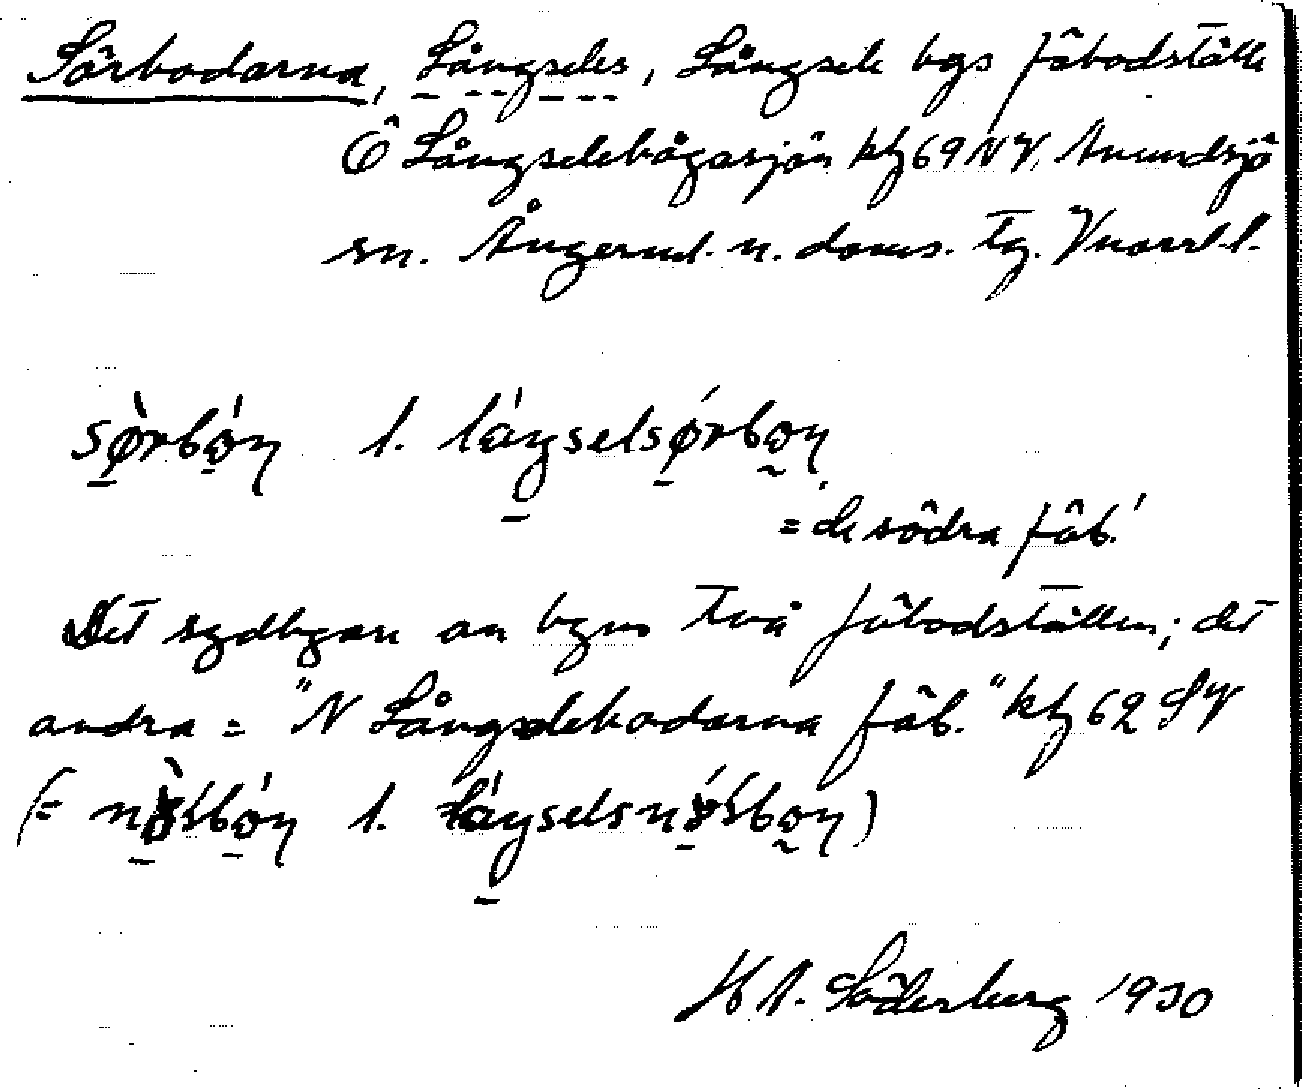 Sörbodarna, Långseles, Långsele bys fäbodställe
Ö Långselebågasjön kbl 69 NV, Anundsjö
sn. Ångerml. n. doms. tg. Vnorrl. l.
sø̀rbón l. láŋselsørbon
= de södra fäb.'
Det sydligare av byns två fäbodställen; det
andra = "N Långselebodarna fäb." kbl 62 SV
(= l. )
H A. Söderberg 1930